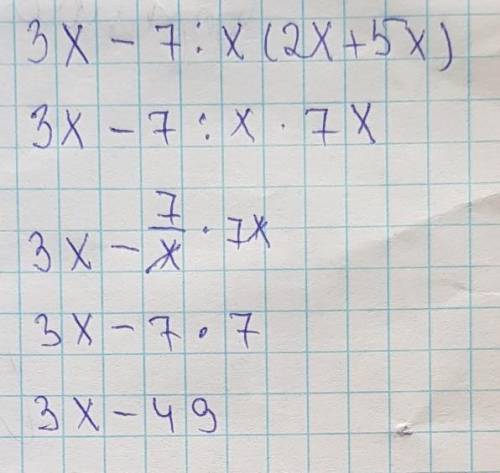 3x - 7 : x (2x + 5x)
3x - 7 : x · 7x
3x - \frac{7}{x} · 7x
3x - 7 · 7
3x - 49